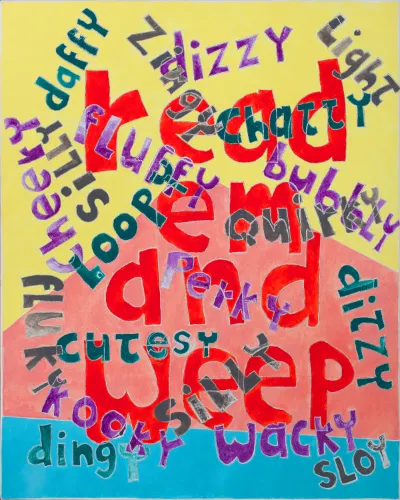 daffy
Zingy
dizzy
Light
read
chatty
cheeky
SiLLY
fLUffy
bubbLY
em
LOOPY
quirky
and
Perky
fLuky
ditzy
cutesy
weep
SiLLY
kooky
wacky
dingy
SLOY